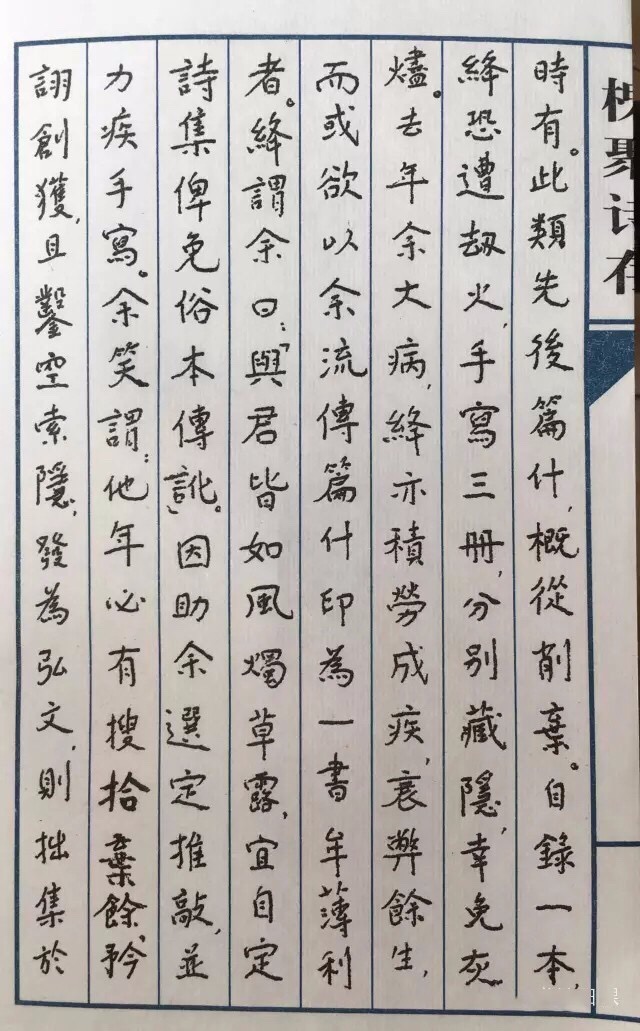 槐聚诗存
時有。此類先後篇什，概從削棄。自錄一本，
絳恐遭劫火，手寫三冊，分别藏隱，幸免灰
燼。去年余大病，絳亦積勞成疾，衰弊餘生，
而或欲以余流傳篇什印為一書牟薄利
者。絳謂余曰：「與君皆如風燭草露，宜自定
詩集俾免俗本傳訛」。因助余選定推敲，並
力疾手寫。余笑謂：他年必有搜拾棄餘，矜
詡創獲，且鑿空索隱，發為弘文，則拙集於